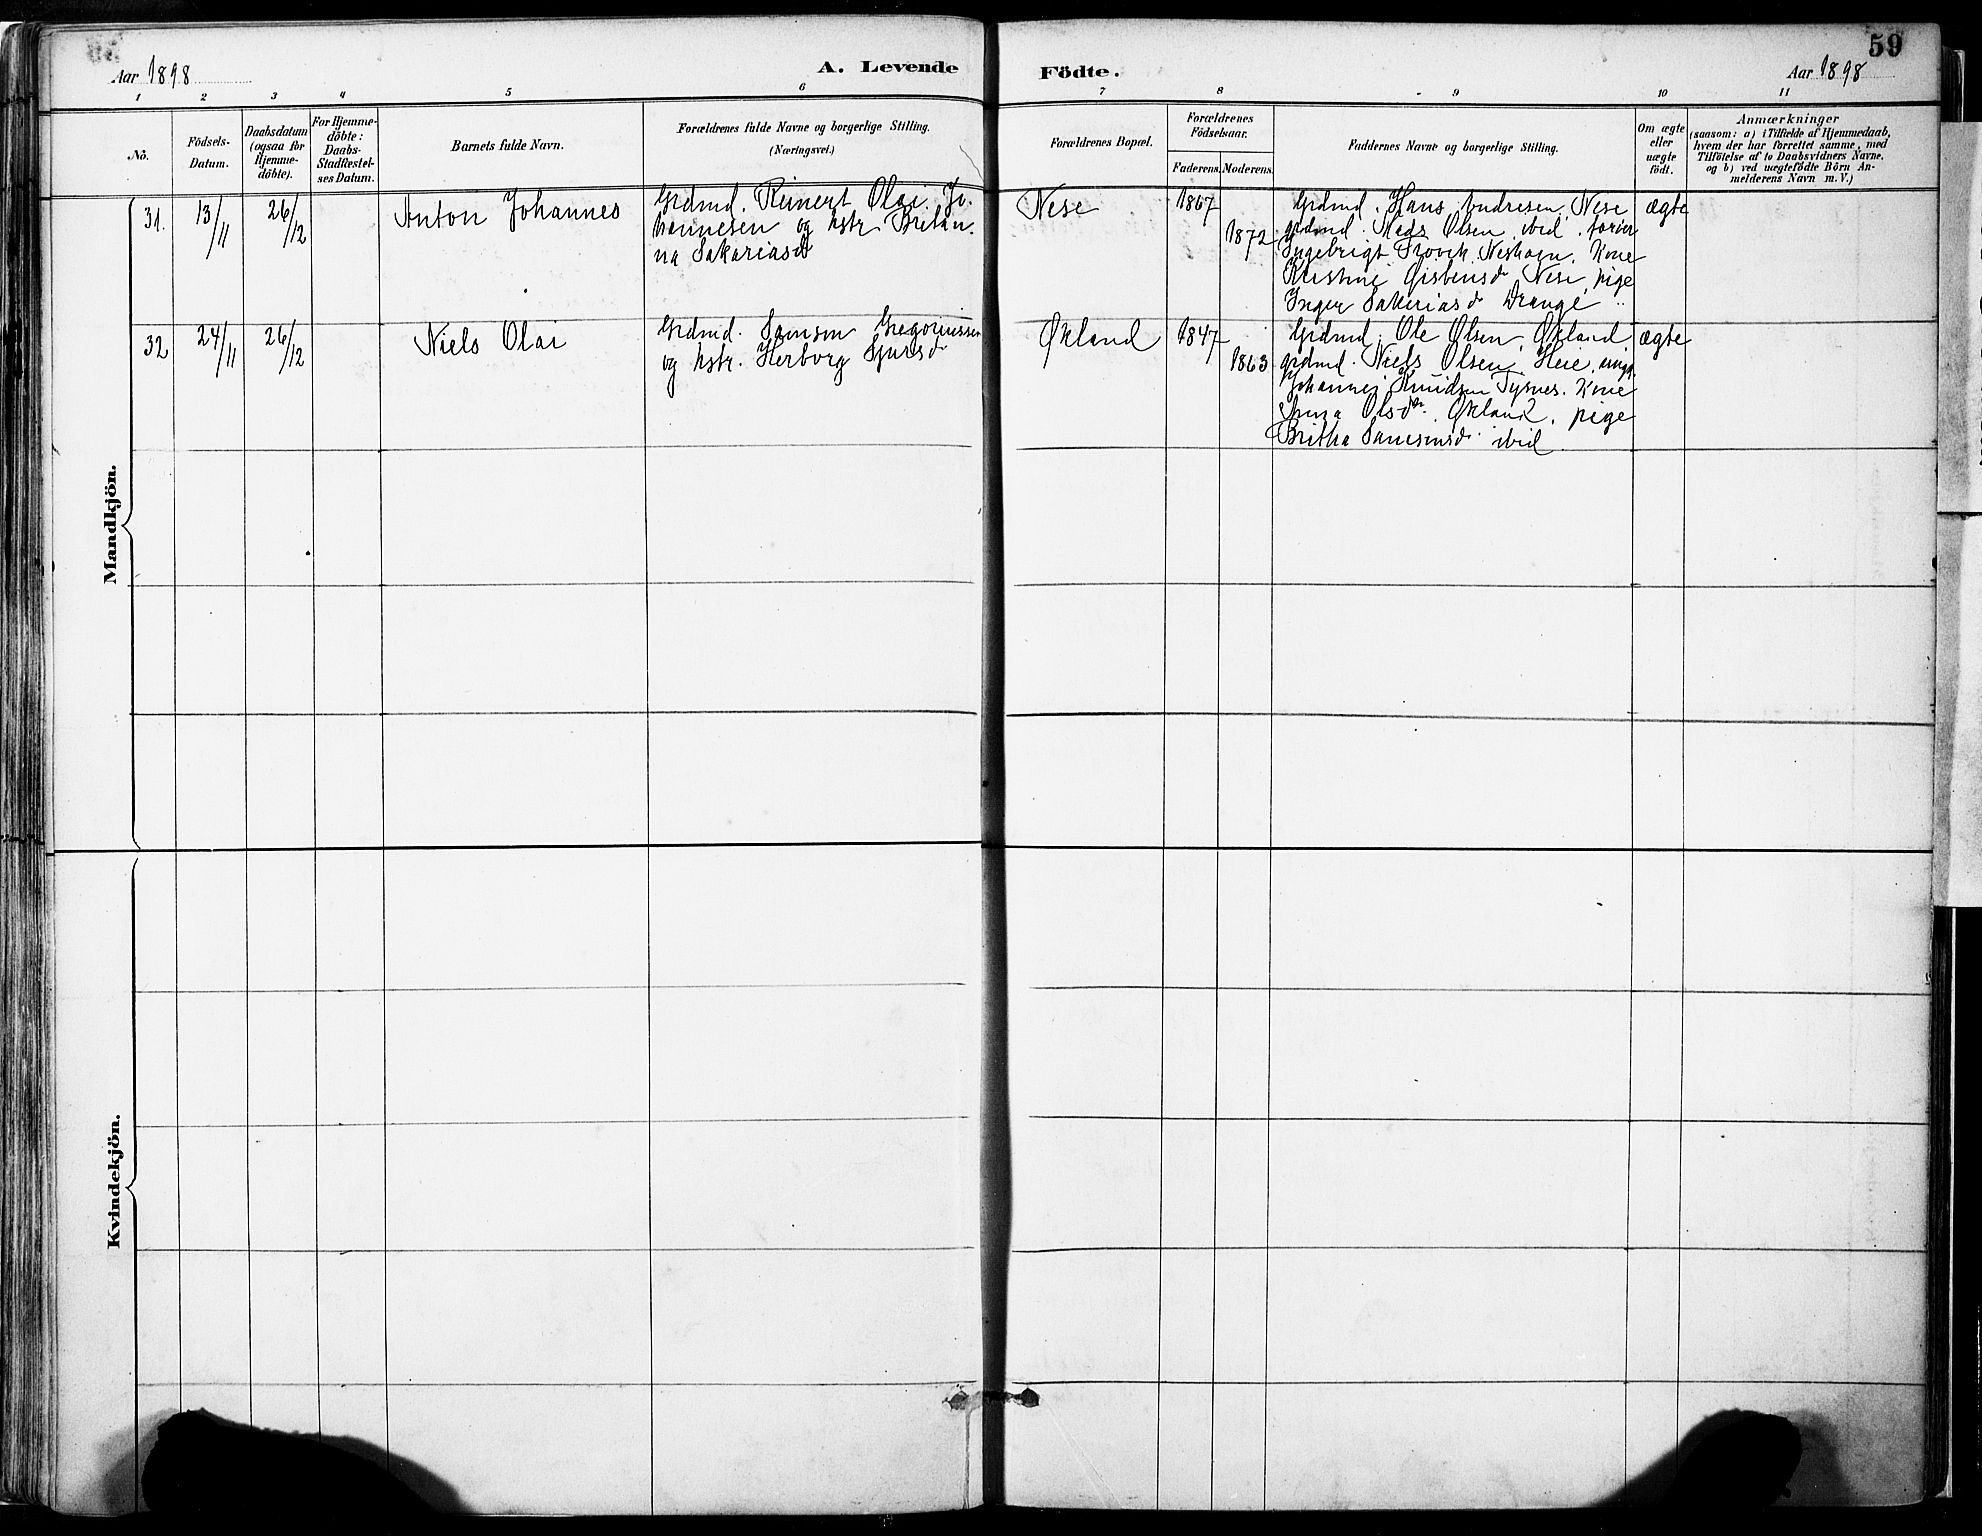 59
Aar 1898
A. Levende
Födte.
Aar 1898
1 2 3 4 5 6 7 8 9 10 11
No.
Födsels-
Datum.
Daabsdatum
(ogsaa for
Hjemme-
döbte).
For Hjemme-
döbte:
Daabs-
Stadfestel-
ses Datum.
Barnets fulde Navn.
Forældrenes fulde Navne og borgerlige Stilling.
(Næringsvei.)
Forældrenes Bopæl.
Forældrenes
Födselsaar.
Faderens. Moderens.
Faddernes Navne og borgerlige Stilling.
Om ægte
eller
uægte
födt.
Anmærkninger
(saasom: a) i Tilfælde af Hjemmedaab,
hvem der har forrettet samme, med
Tilföielse af to Daabsvidners Navne,
og b) ved uægtefödte Börn An-
melderens Navn m. V.)
Mandkjön.
31.
13/11
26/12
Anton Johannes
Grdmd. Reinert Olai Jo-
hannesen og hstr. Britan-
na Sakariasd
Nese
1867
1872
Grdmd. Hans Andresen, Nese
grdmd. Mads Olsen, ibid.
Ingebrigt Neshagen. Kone
Kristine Nese, pige
Inger Sakariasd Drange
ægte
32
24/11
26/12
Niels Olai
Grdmd. Samson Gregoriussen
og hstr. Herborg Sjursd
Økland
1847
1863
Grdmd. Ole Olsen, Økland
grdmd. Niels Olsen, Heie, ungk.
Johannes Knudsen Tysnes. Kone
Anna Olsdr. Økland, pige
Britha Samsonsd. ibid.
ægte
Kvindekjön.